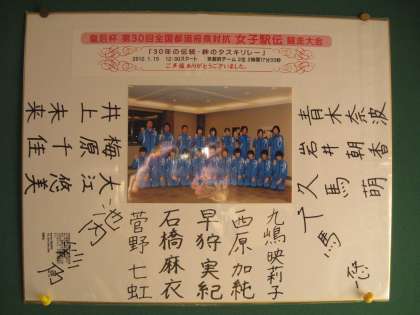 皇后杯 第30回全国都道府県対抗 女子駅伝 競走大会
「30年の伝統・絆のタスキリレー」
2012.1.15 12:30スタート 京都府チーム 2位 2時間17分33秒
ご声援ありがとうございました。
青木奈波
岩井朝香
久馬萌
久馬悠
九嶋映莉子
西原加純
早狩実紀
石橋麻衣
菅野七虹
大江悠美
梅原千佳
井上未来